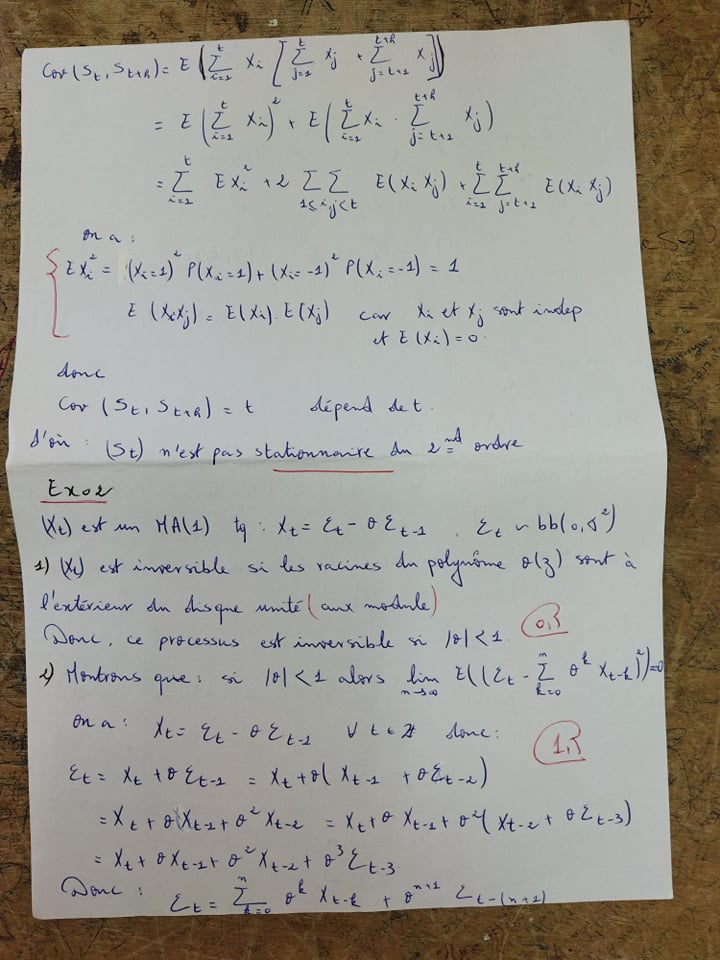 Cov(S_t, S_{t+h}) = E(∑_{i=1}^{t} X_i [∑_{j=1}^{t} X_j + ∑_{j=t+1}^{t+h} X_j])
= E(∑_{i=1}^{t} X_i)² + E(∑_{i=1}^{t} X_i · ∑_{j=t+1}^{t+h} X_j)
= ∑_{i=1}^{t} E X_i² + 2 ∑∑_{1≤i,j<t} E(X_i X_j) + ∑_{i=1}^{t} ∑_{j=t+1}^{t+h} E(X_i X_j)
on a :
E X_i² = (X_i=1)² P(X_i=1) + (X_i=-1)² P(X_i=-1) = 1
E(X_i X_j) = E(X_i). E(X_j) car X_i et X_j sont indep
et E(X_i) = 0.
donc
Cov(S_t, S_{t+h}) = t dépend de t.
d'où : (S_t) n'est pas stationnaire du 2nd ordre
Exo2
(X_t) est un MA(1) tq : X_t = ε_t - θ ε_{t-1} , ε_t ~ bb(0, σ²)
1) (X_t) est inversible si les racines du polynôme θ(z) sont à
l'extérieur du disque unité (aux module)
Donc, ce processus est inversible si |θ|<1.
2) Montrons que : si |θ|<1 alors lim_{n→∞} E((ε_t - ∑_{k=0}^{n} θ^k X_{t-k})²) = 0
on a : X_t = ε_t - θ ε_{t-1} ∀ t ∈ ℤ donc :
ε_t = X_t + θ ε_{t-1} = X_t + θ(X_{t-1} + θ ε_{t-2})
= X_t + θ X_{t-1} + θ² X_{t-2} = X_t + θ X_{t-1} + θ²(X_{t-2} + θ ε_{t-3})
= X_t + θ X_{t-1} + θ² X_{t-2} + θ³ ε_{t-3}
Donc : ε_t = ∑_{k=0}^{n} θ^k X_{t-k} + θ^{n+1} ε_{t-(n+1)}